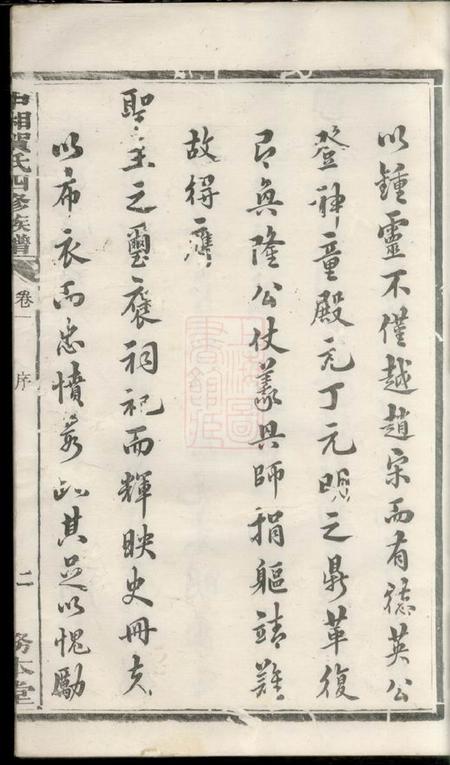 以鍾靈不僅越趙宋而有德英公
登神童殿元丁元明之鼎革復
有興隆公仗義興師捐軀靖難
故得膺
聖主之璽褒祠祀而輝映史冊夫
以布衣而忠憤若此其足以愧勵
中湘賀氏四修族譜
卷一
序
二
務本堂
上海圖
書館藏